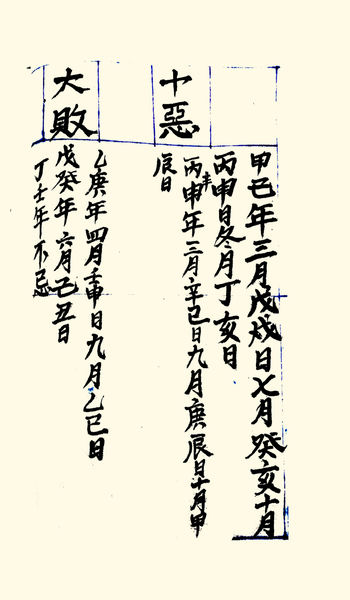 十惡
大敗
甲巳年三月戊戌日七月癸亥十月
丙申日冬月丁亥日
丙辛年三月辛巳日九月庚辰日十月甲
辰日
乙庚年四月壬申日九月乙巳日
戊癸年六月己丑日
丁壬年不忌